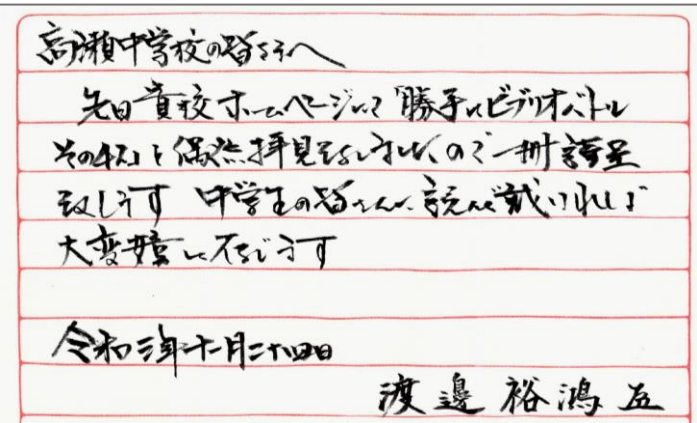 高瀬中学校の皆さまへ
先日貴校ホームページにて「勝手にビブリオバトル
その438」を偶然拝見致しましたので一冊謹呈
致します 中学生の皆さんに読んで戴ければ
大変嬉しく存じます
令和三年十一月二十四日
渡邊裕鴻